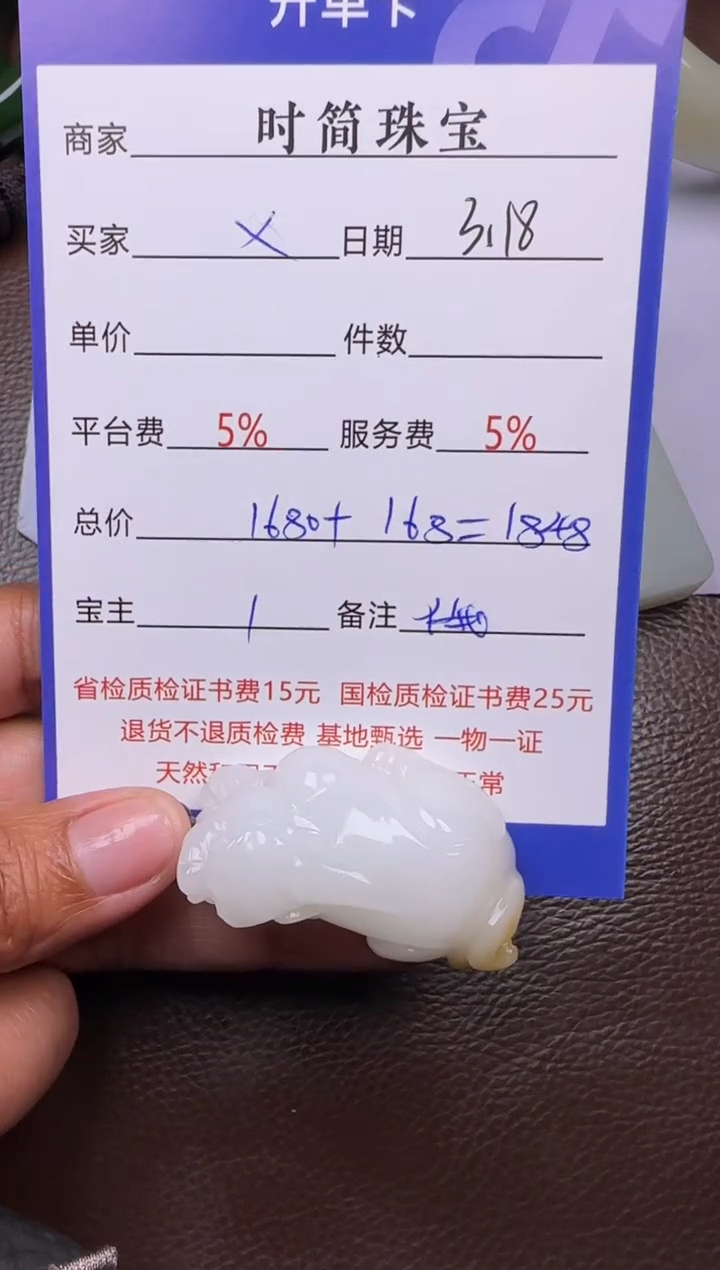 开单卡
商家 时简珠宝
买家 日期 3.18
单价 件数
平台费 5% 服务费 5%
总价 1680+168=1848
宝主 1 备注
省检质检证书费15元 国检质检证书费25元
退货不退质检费 基地甄选 一物一证
天然 正常